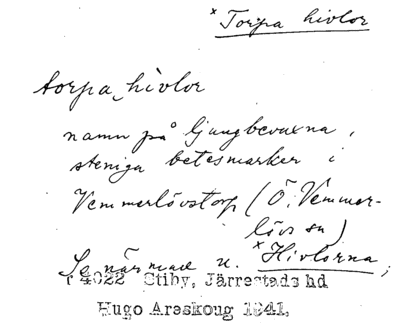 × Torpa hivlor
torpa hivlor
namn på ljungbevuxna,
steniga betesmarker i
Vemmerlövstorp (Ö. Vemmer-
lövs sn)
Se närmare u. × Hivlorna,
r 4022 Stiby, Järrestads hd
Hugo Areskoug 1941.